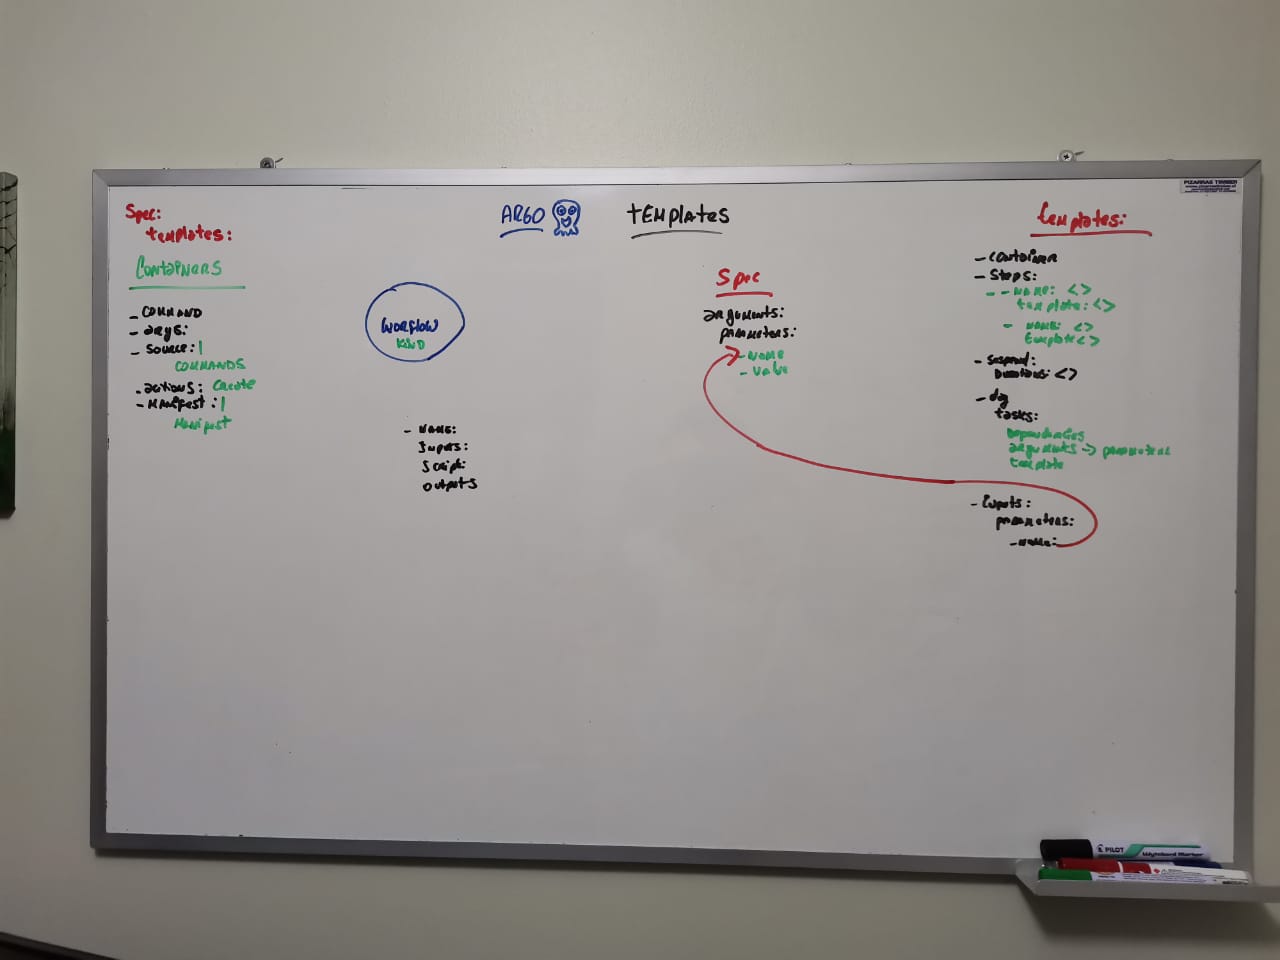 ARGO TEMPlates
Spec:
templates:
Containers
- COMMAND
- args:
- Source: |
COMMANDS
- actions: Create
- Manifest: |
Manifest
WORKFLOW
KIND
- NAME:
Inputs:
Script:
outputs
Spec
arguments:
parameters:
- Name
- Value
templates:
- Container
- Steps:
- - NAME: <>
template: <>
- NAME: <>
template <>
- Suspend:
Duration: <>
- dag
tasks:
Dependencies
arguments -> parameters
template
- Inputs:
parameters:
- Name:
PIZARRAS TIMBER
PILOT
Wyteboard Marker